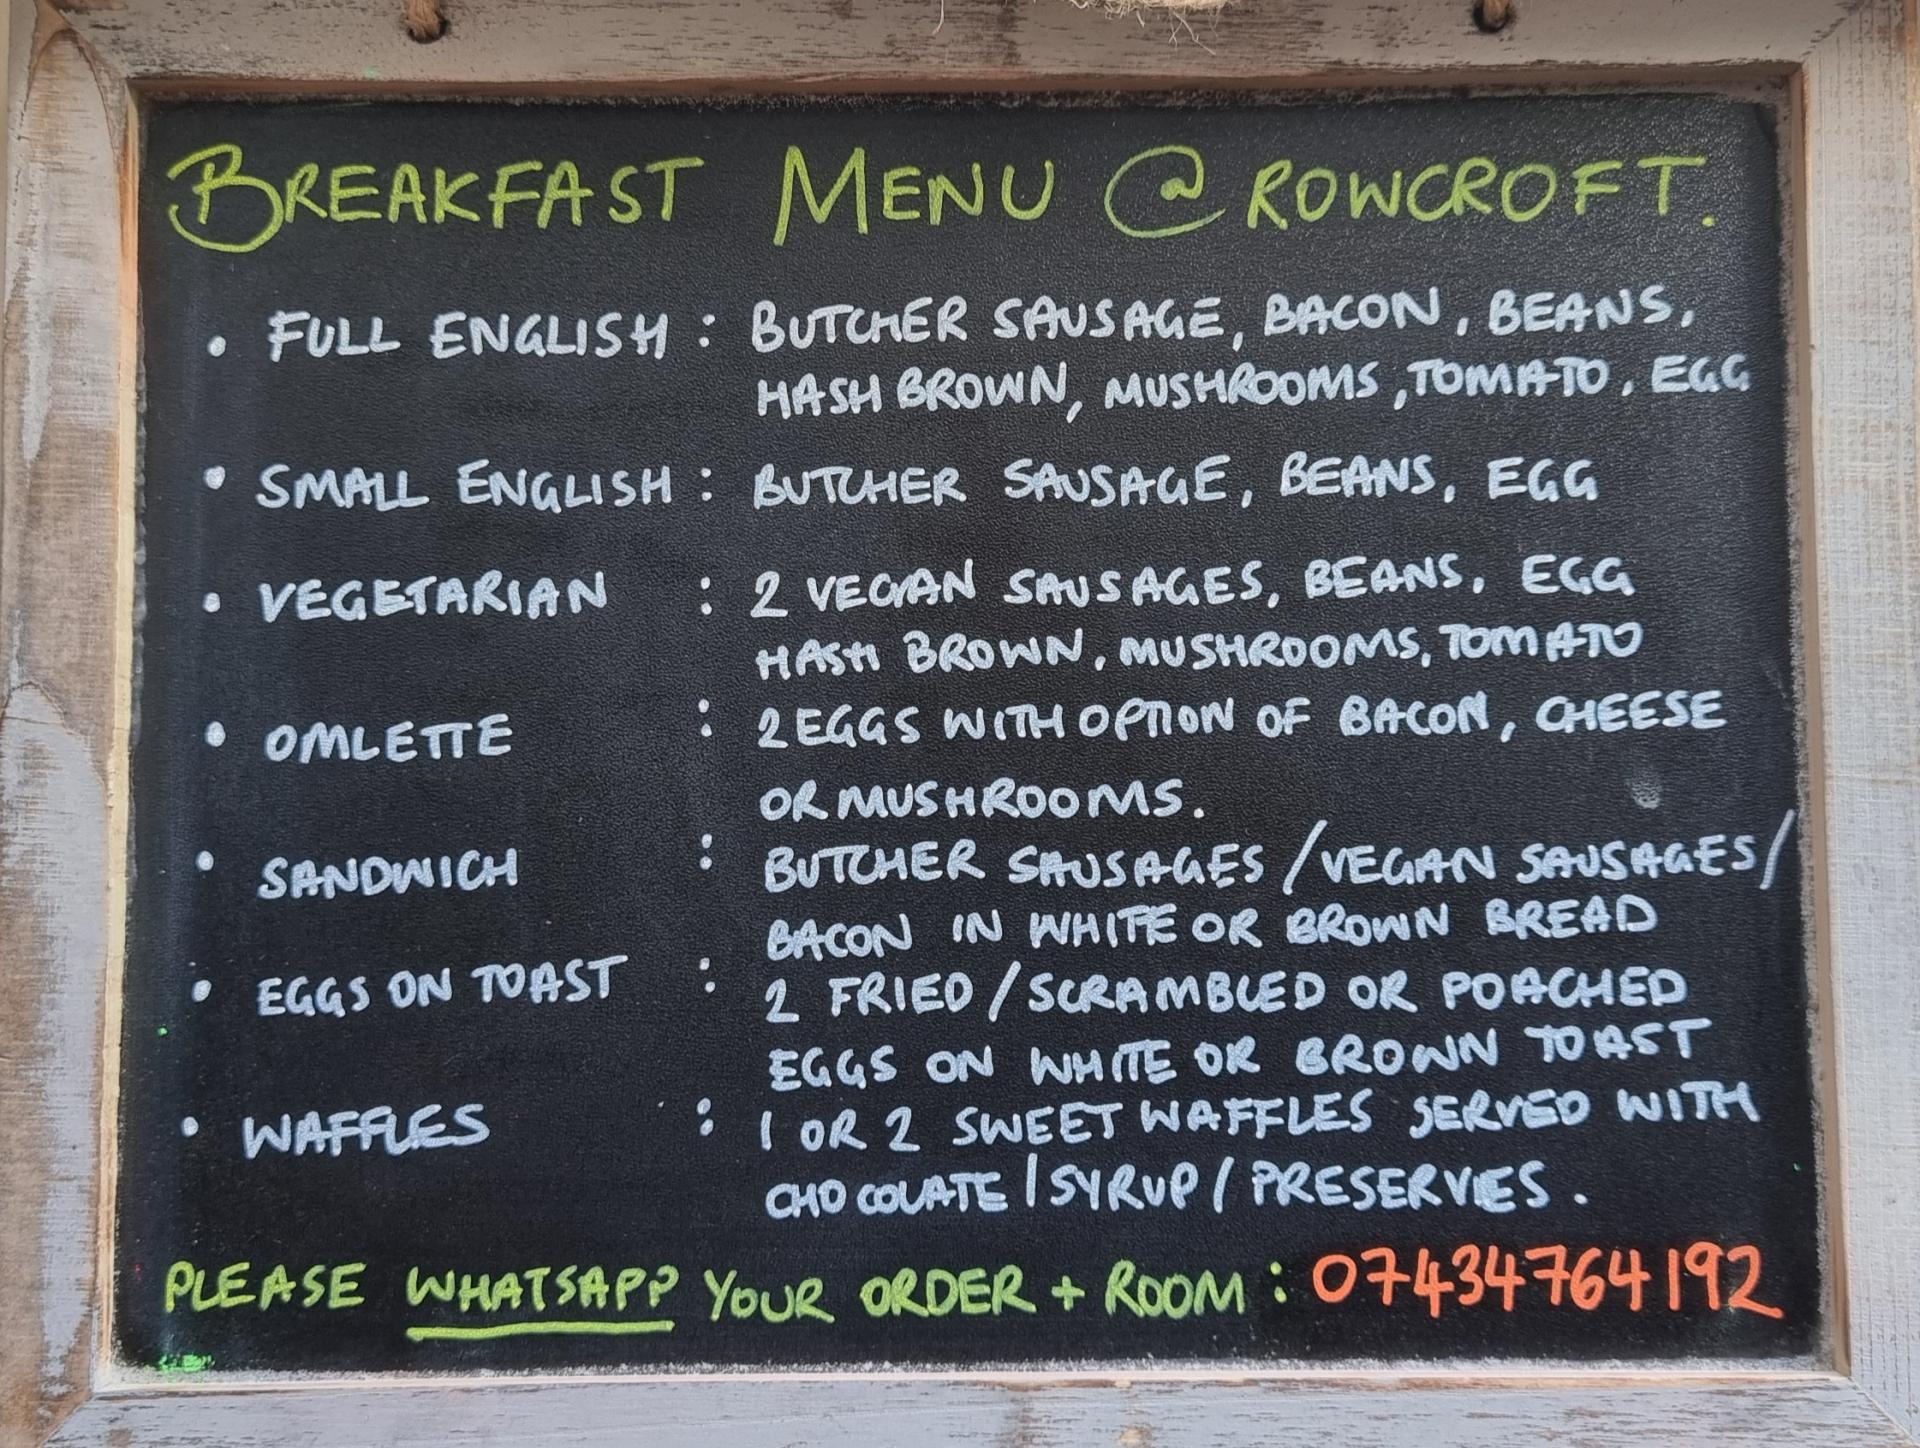 BREAKFAST MENU @ ROWCROFT.
• FULL ENGLISH : BUTCHER SAUSAGE, BACON, BEANS,
HASH BROWN, MUSHROOMS, TOMATO, EGG
• SMALL ENGLISH : BUTCHER SAUSAGE, BEANS, EGG
• VEGETARIAN : 2 VEGAN SAUSAGES, BEANS, EGG
HASH BROWN, MUSHROOMS, TOMATO
• OMLETTE : 2 EGGS WITH OPTION OF BACON, CHEESE
OR MUSHROOMS.
• SANDWICH : BUTCHER SAUSAGES / VEGAN SAUSAGES /
BACON IN WHITE OR BROWN BREAD
• EGGS ON TOAST : 2 FRIED / SCRAMBLED OR POACHED
EGGS ON WHITE OR BROWN TOAST
• WAFFLES : 1 OR 2 SWEET WAFFLES SERVED WITH
CHOCOLATE / SYRUP / PRESERVIES.
PLEASE WHATSAPP YOUR ORDER + ROOM : 07434764192